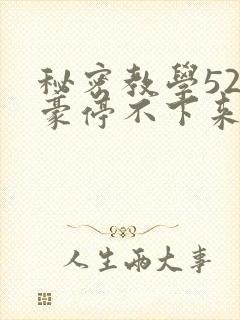 秘密教學52
豪停不下來
人生兩大事